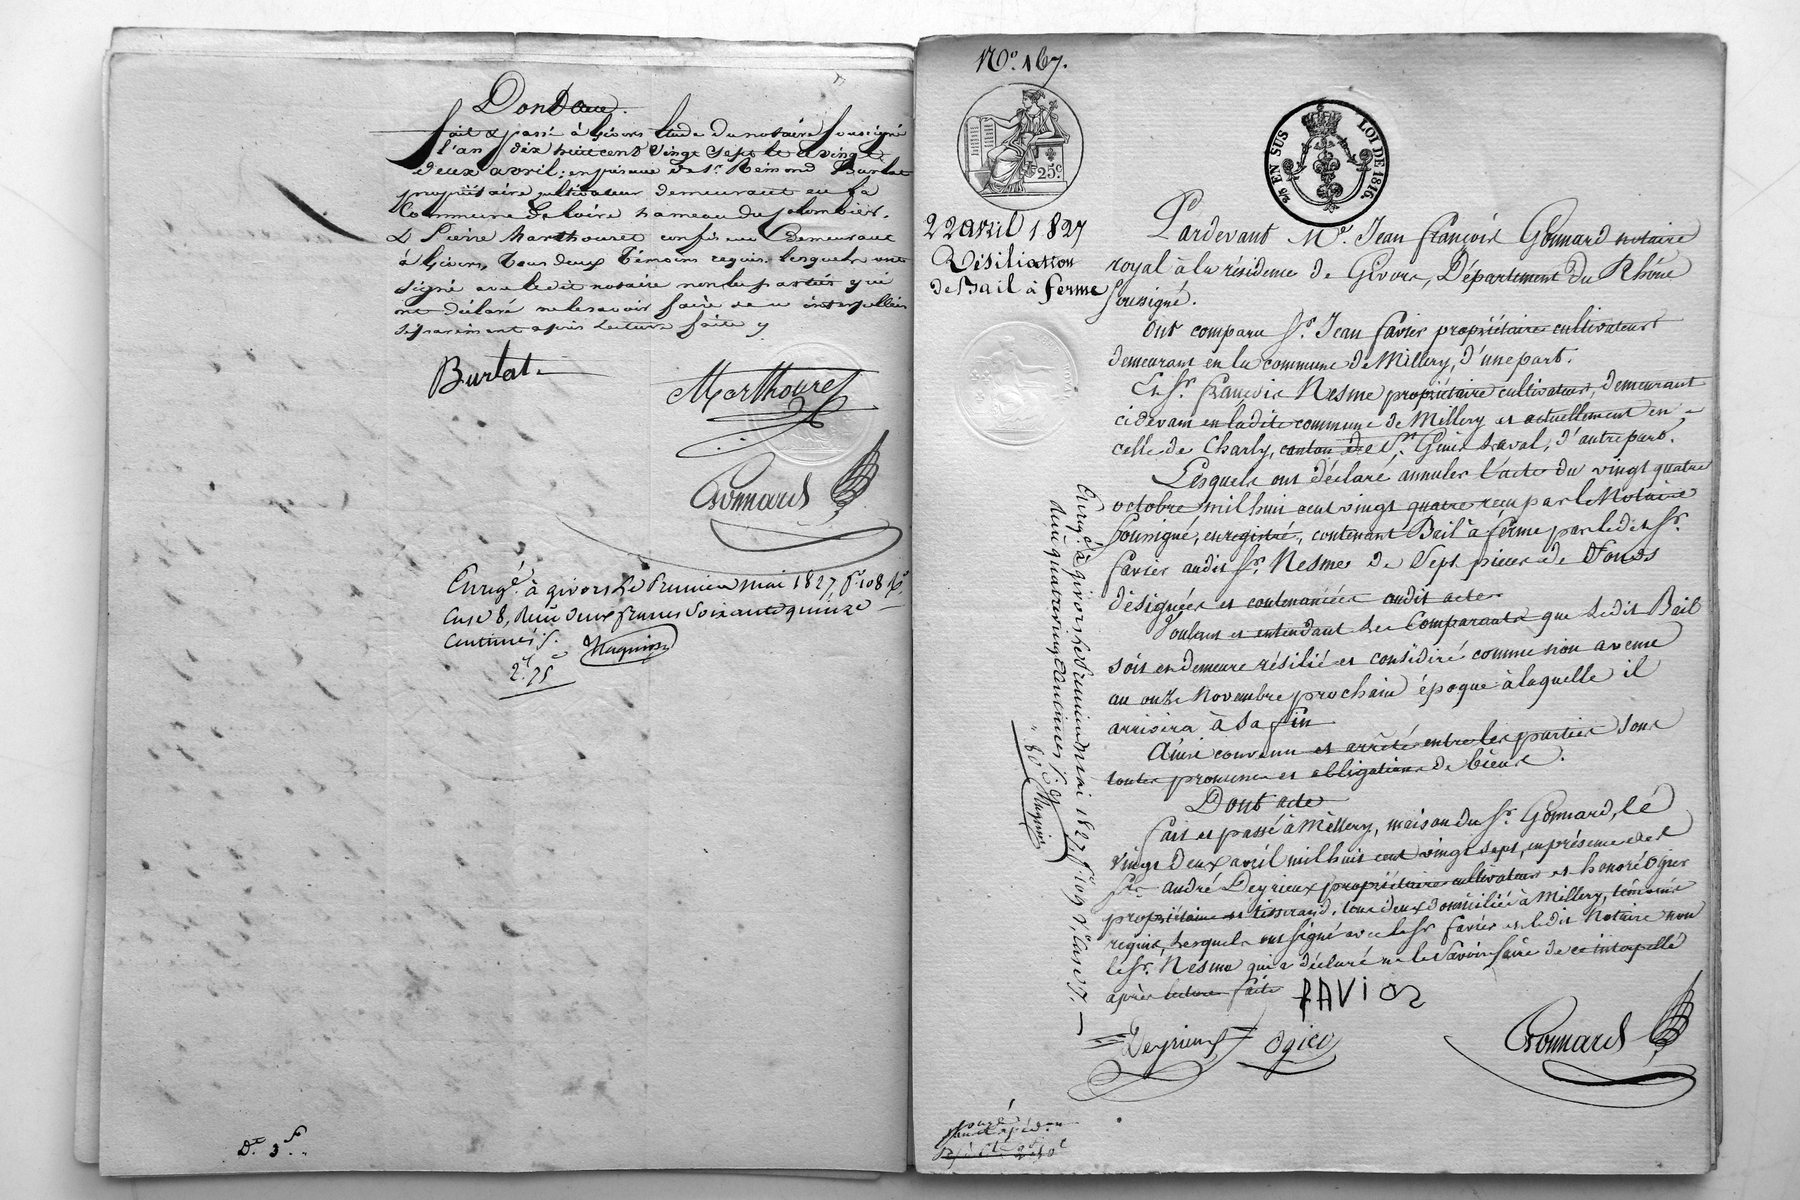 Dont acte
fait & passé à Givors Etude du notaire soussigné
l'an dix huit cent vingt sept le vingt
deux avril; en présence de Sr. Rémond Burlat
propriétaire cultivateur demeurant en la
Commune de Loire hameau du
& Pierre Marthouret demeurant
à Givors, tous deux témoins requis lesquels ont
signé avec ledit notaire non les parties qui
ont déclaré ne le savoir faire de ce interpellées
séparément après lecture faite
Burlat
Marthouret
Gonnard
Enregé. à givors le Premier mai 1827, fo. 108
Case 8, Reçu deux francs Soixante quinze
Centimes
2f 75
Dt. 3f..
No. 167.
25c
2/6 EN SUS
LOI DE 1816.
22 avril 1827
Résiliation
de Bail à ferme
Pardevant Me. Jean françois Gonnard notaire
royal à la résidence de Givors, Département du Rhône
soussigné.
Ont comparu Sr. Jean favier propriétaire cultivateur
demeurant en la commune de Millery, d'une part.
Et Sr. françois Nesme propriétaire cultivateur, demeurant
cidevant en ladite commune de Millery et actuellement en
celle de Charly, canton de St. Genis Laval, d'autre part.
Lesquels ont déclaré annuler l'acte du vingt quatre
octobre mil huit cent vingt quatre reçu par le Notaire
soussigné, enregistré, contenant Bail à ferme par ledit Sr.
favier audit Sr. Nesme de Sept pièces de fonds
désignées et contenancées audit acte
Voulant et entendant les Comparants que ledit Bail
soit et demeure résilié et considéré comme non avenu
au onze Novembre prochain époque à laquelle il
arrivera à sa fin
Ainsi convenu et arrêté entre les parties sous
toutes promesses et obligations de biens.
Dont acte
fait et passé à Millery, maison du Sr. Gonnard, le
vingt deux avril mil huit cent vingt sept, en présence de
Srs andré Deyrieux propriétaire cultivateur et honoré Ogier
propriétaire et tisserand, tous deux domiciliés à Millery, témoins
requis, lesquels ont signé avec le Sr favier et ledit Notaire non
le Sr. Nesme qui a déclaré ne le savoir faire de ce interpellé
après lecture faite
FAVIER
Deyrieux
Ogier
Gonnard
Enregé à givors le Premier mai 1827 fo 109 Vo. Case 7.
Reçu quatrevingt centimes